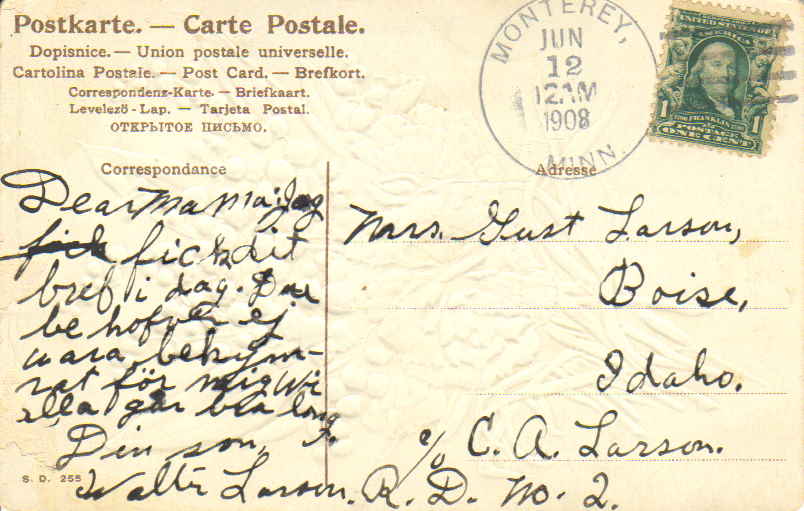 Postkarte. — Carte Postale.
Dopisnice. — Union postale universelle.
Cartolina Postale. — Post Card. — Brefkort.
Correspondenz-Karte. — Briefkaart.
Levelező-Lap. — Tarjeta Postal.
ОТКРЫТОЕ ПИСЬМО.
MONTEREY,
JUN
12
12AM
1908
MINN.
UNITED STATES OF
AMERICA
1 FRANKLIN 1
POSTAGE
ONE CENT
Correspondance
Adresse
Dear Mama: Jag
fick fick dit
bref i dag. Du
behofver ej
vara bekym-
rat för mig Wi
alla går bra
Din son,
Walter Larson.
Mrs. Gust Larson,
Boise,
Idaho.
c/o C. A. Larson.
R. D. No. 2.
S. D. 255